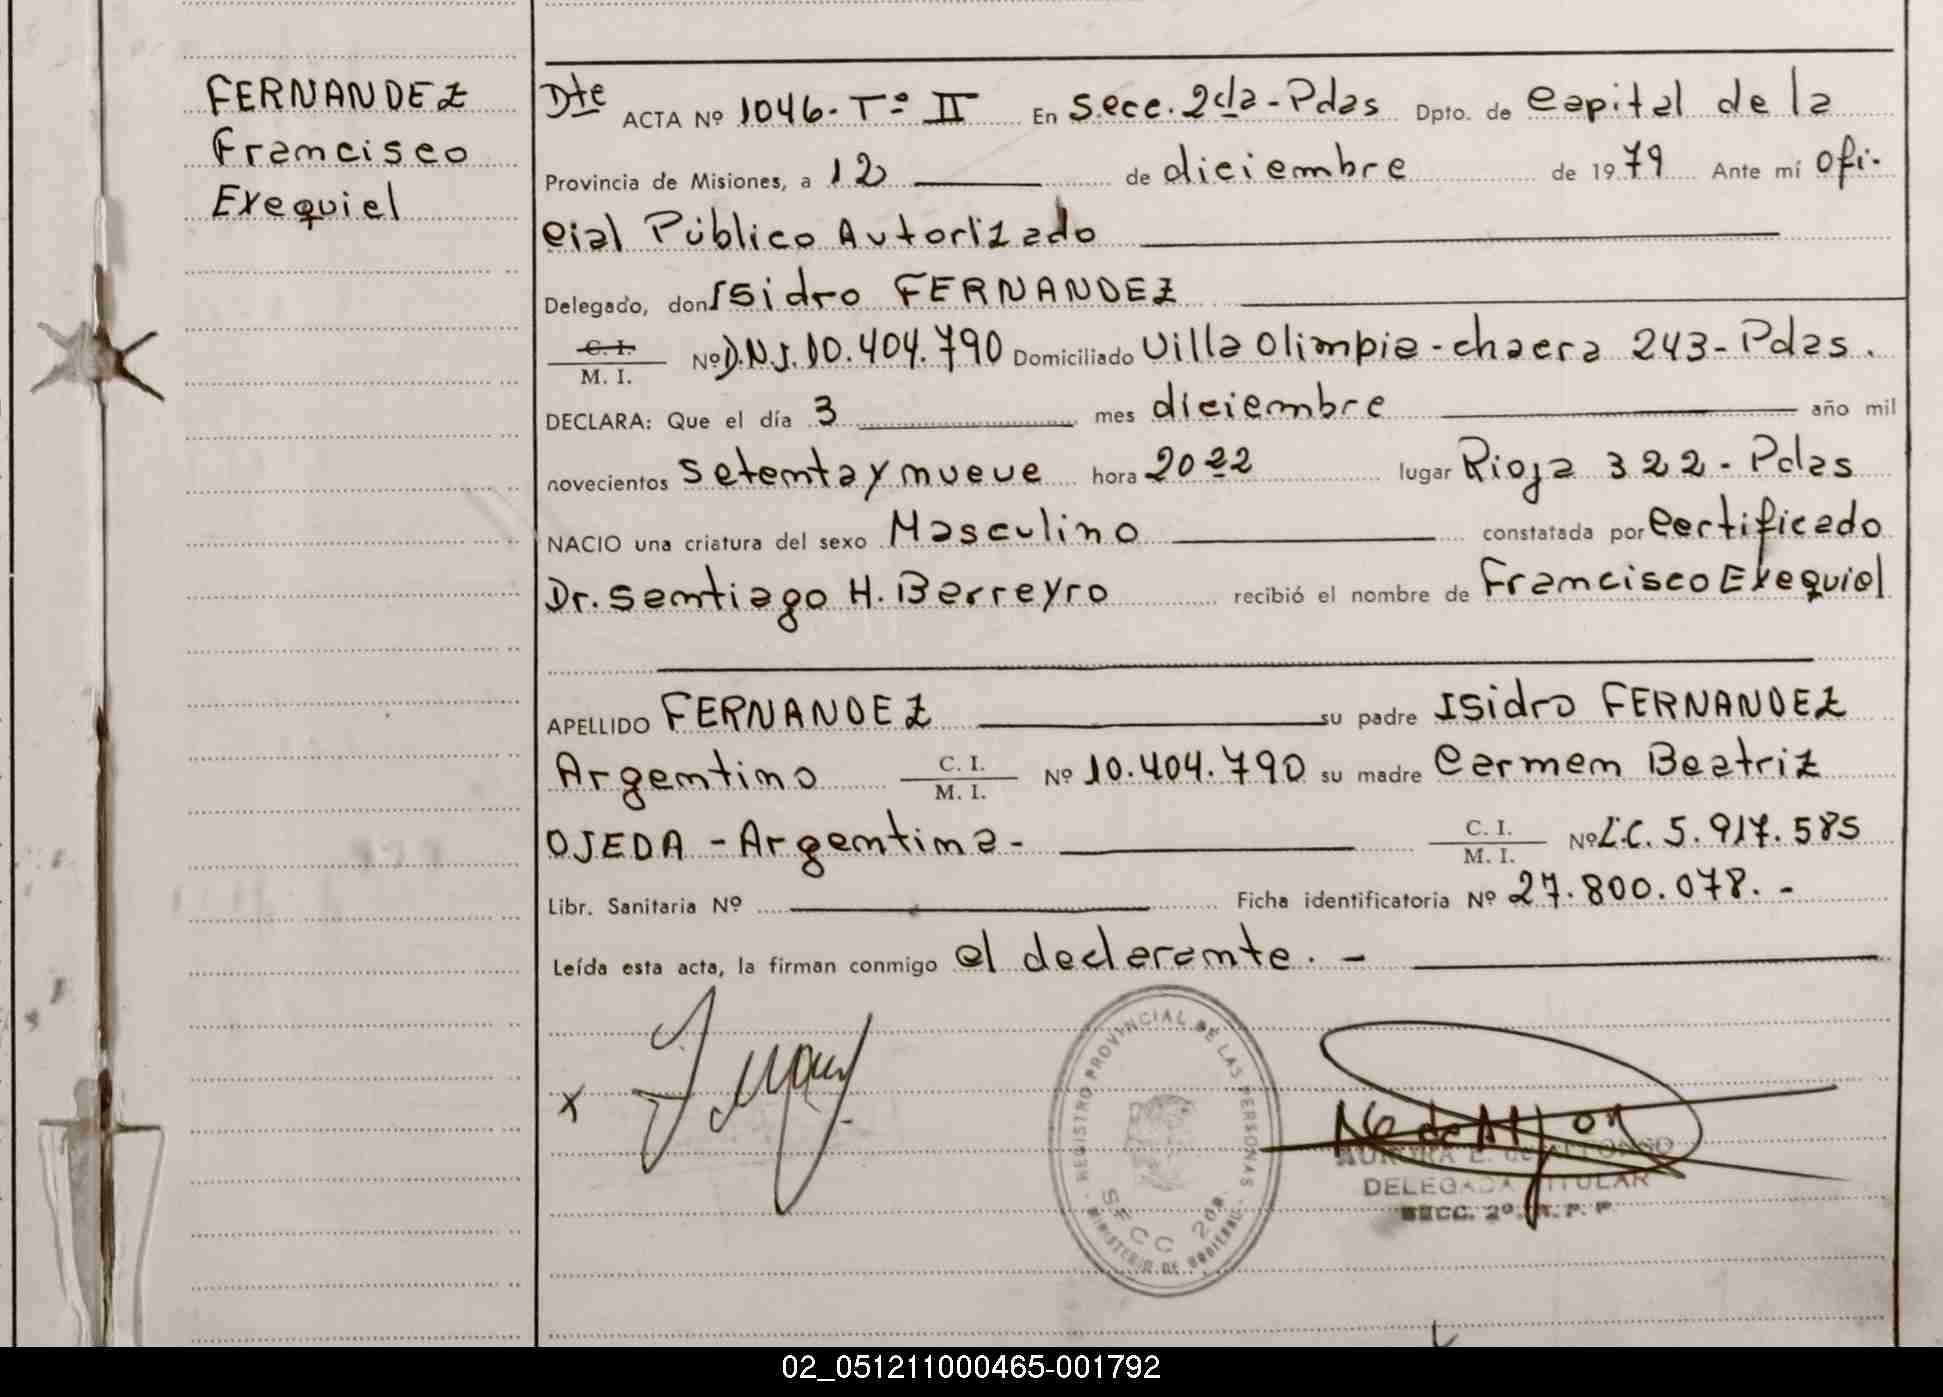 FERNANDEZ
Francisco
Exequiel
Dte ACTA Nº 1046- Tº II En Secc. 2da - Pdas Dpto. de Capital de la
Provincia de Misiones, a 12 de diciembre de 1979 Ante mí Ofi-
cial Público Autorizado
Delegado, don Isidro FERNANDEZ
C. I.
M. I. Nº D.N.I. 10.404.790 Domiciliado Villa Olimpia - chacra 243 - Pdas.
DECLARA: Que el día 3 mes diciembre año mil
novecientos setenta y nueve hora 20 22 lugar Rioja 322 - Pdas
NACIO una criatura del sexo Masculino constatada por Certificado
Dr. Santiago H. Barreyro recibió el nombre de Francisco Exequiel
APELLIDO FERNANDEZ su padre Isidro FERNANDEZ
Argentino C. I. M. I. Nº 10.404.790 su madre Carmen Beatriz
OJEDA - Argentina - C. I. M. I. Nº L.C. 5.917.585
Libr. Sanitaria Nº Ficha identificatoria Nº 27.800.078. -
Leída esta acta, la firman conmigo el declarante. -
x
REGISTRO PROVINCIAL DE LAS PERSONAS
SECC 2da
MINISTERIO DE GOBIERNO
AURORA E. de ALFONSO
DELEGADA TITULAR
SECC. 2º. R. P. P
02_051211000465-001792